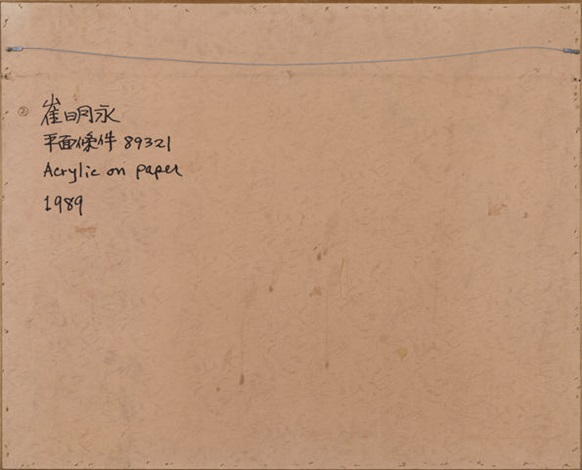 ② 崔明永
平面條件 89321
Acrylic on paper
1989